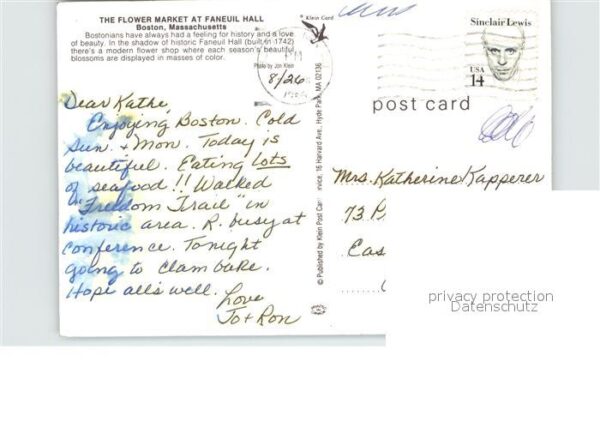 THE FLOWER MARKET AT FANEUIL HALL
Boston, Massachusetts
Bostonians have always had a feeling for history and a love
of beauty. In the shadow of historic Faneuil Hall (built in 1742)
there's a modern flower shop where each season's beautiful
blossoms are displayed in masses of color.
Photo by Jon Klein
Klein Card
PM
8/26
Dear Kathe,
Enjoying Boston. Cold
Sun. + Mon. Today is
beautiful. Eating Lots
of seafood!! Walked
"Freedom Trail" in
historic area. R. busy at
conference. Tonight
going to clam bake.
Hope all's well.
Love
Jo + Ron
© Published by Klein Post Card Service, 16 Harvard Ave., Hyde Park, MA 02136
Sinclair Lewis
USA
14
post card
Mrs. Katherine Kapperer
73
Cas
privacy protection
Datenschutz